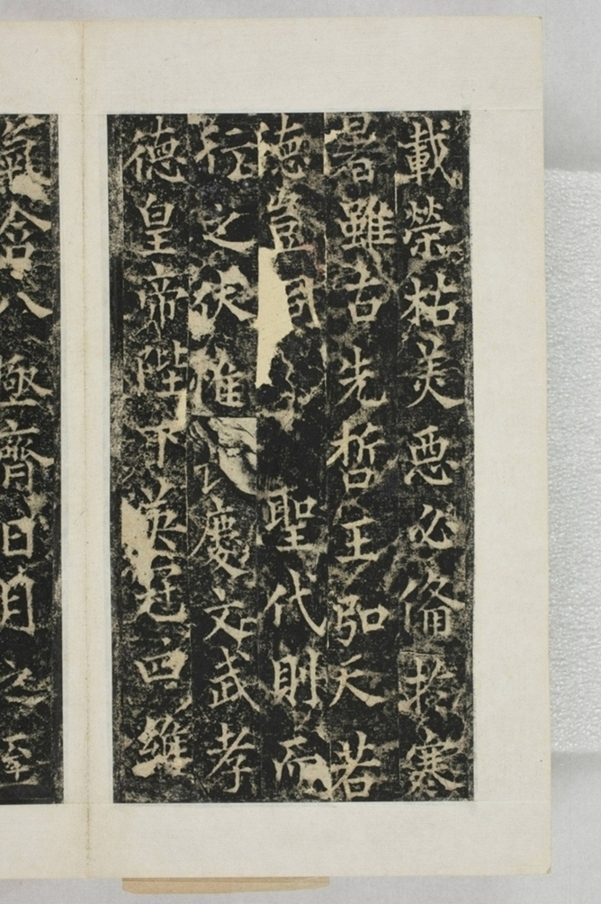 載榮枯美惡必備於寒
暑雖古先哲王弘天若
德豈同聖代則而
行之伏惟慶文武孝
德皇帝陛下英冠四維
氣含八極齊日月之至